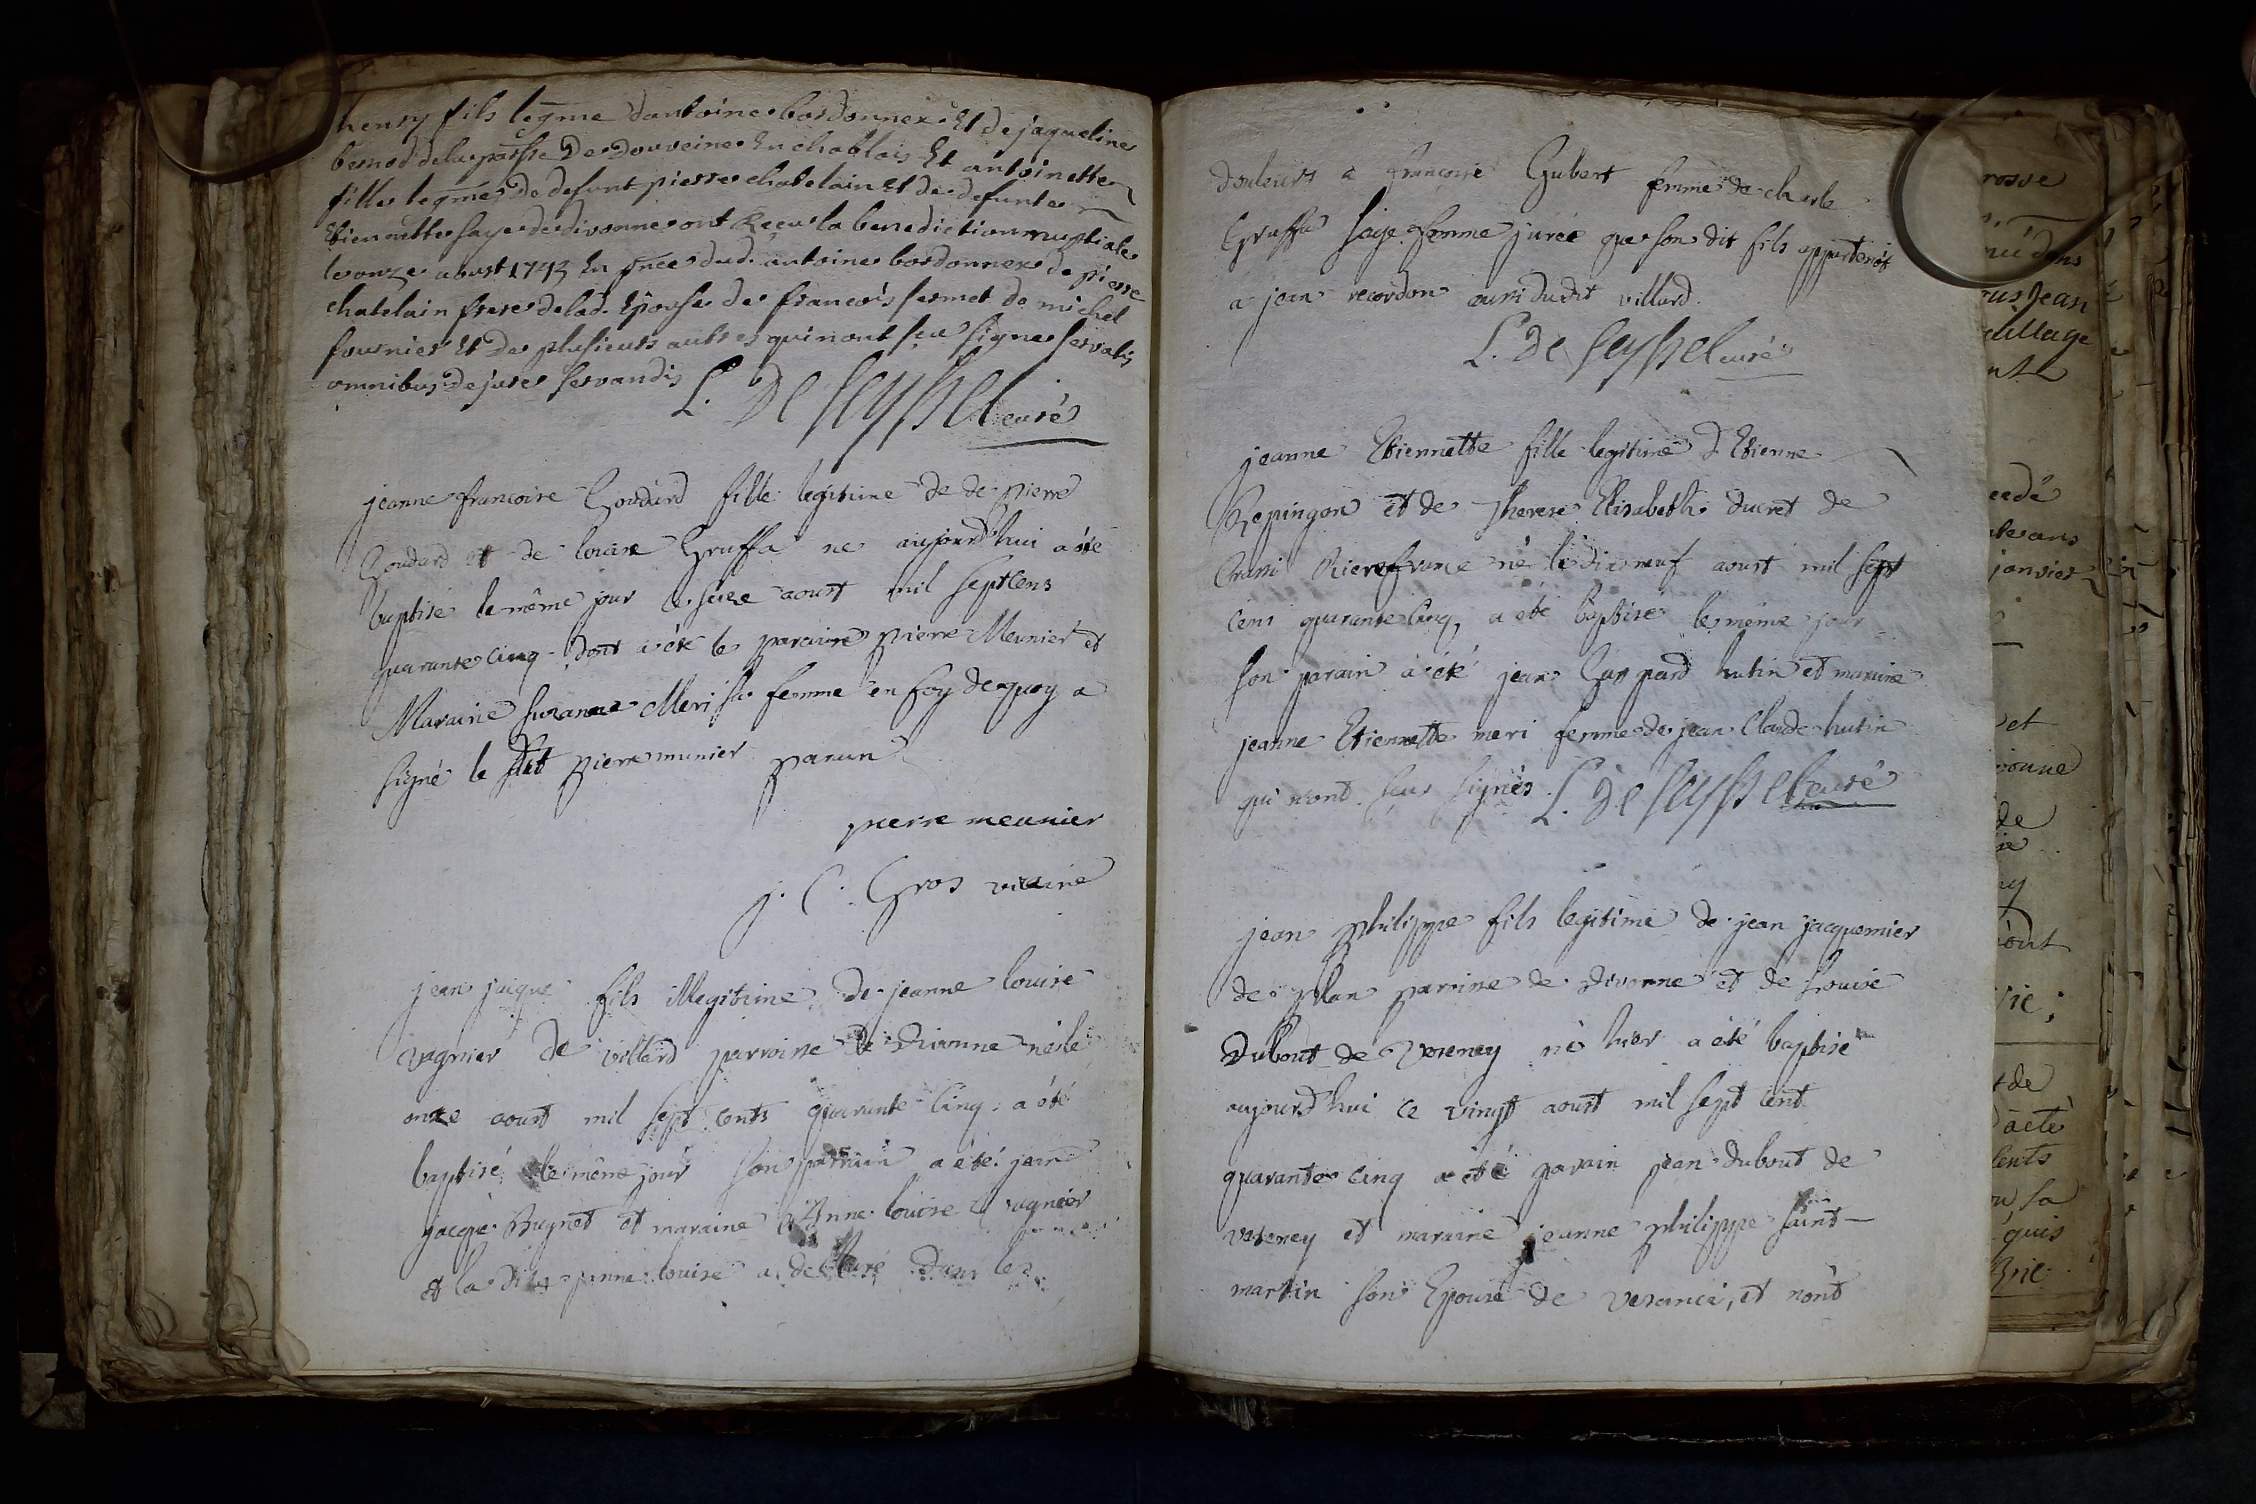 henry fils legme dantoine bordonnex Et de jaqueline
bernod de la parsse De douveine En chablais Et antoinette
fille legme de defunt pierre chatelain Et de defunte
Etiennette saye de divonne ont Reçu la benediction nuptiale
le onze aoust 1745 En pnce dud. antoine bordonnex de pierre
chatelain frere de lad. Epouse de francois fermet de michel
fournier Et de plusieurs autres qui n'ont sçu signer servatis
omnibus de jure servandis
L. De Seyssel curé
jeanne francoise Goudard fille legitime de de pierre
Goudard et de louise Gruffa ne aujourd'hui a été
baptisé le même jour ce seize aoust mil sept cens
quarante cinq dont a été le paraine pierre Meunier et
Maraine suzanne Meri sa femme en foy de quoy a
signé le dit pierre munier parain
pierre meunier
j. C. Gros vicaire
jean jaique fils illegitime de jeanne louise
vagnier de villard parroisse de Divonne né le
onze aoust mil sept cents quarante cinq a été
baptisé le même jour son parrain a été jean
jacque Buynet et maraine Anne louise vagnier
et la dite janne louise a declaré dans les
douleurs a françoise Gubert femme de charle
Gruffa sage femme jurée que son dit fils appartenoit
a jean recordon aussi du dit villard
L. De Seyssel curé
jeanne Etiennette fille legitime d'Etienne
Repingon et de Therese Elisabeth ducret de
Crassi Riere france né le dix neuf aoust mil sept
cens quarante cinq, a été baptisé le même jour
son parain a été jean Gaspard hutin et maraine
jeanne Etiennette meri femme de jean Claude hutin
qui n'ont sçus signés L. De Seyssel curé
jean philippe fils legitime de jean jacquemier
de plan parroisse de divonne et de Louise
Dubout de Veseney né hier a été baptisé
aujourd'hui ce vingt aoust mil sept cent
quarante cinq a été parain jean dubout de
veseney et maraine jeanne philippe saint
martin son Epouse de vesanci, et n'ont